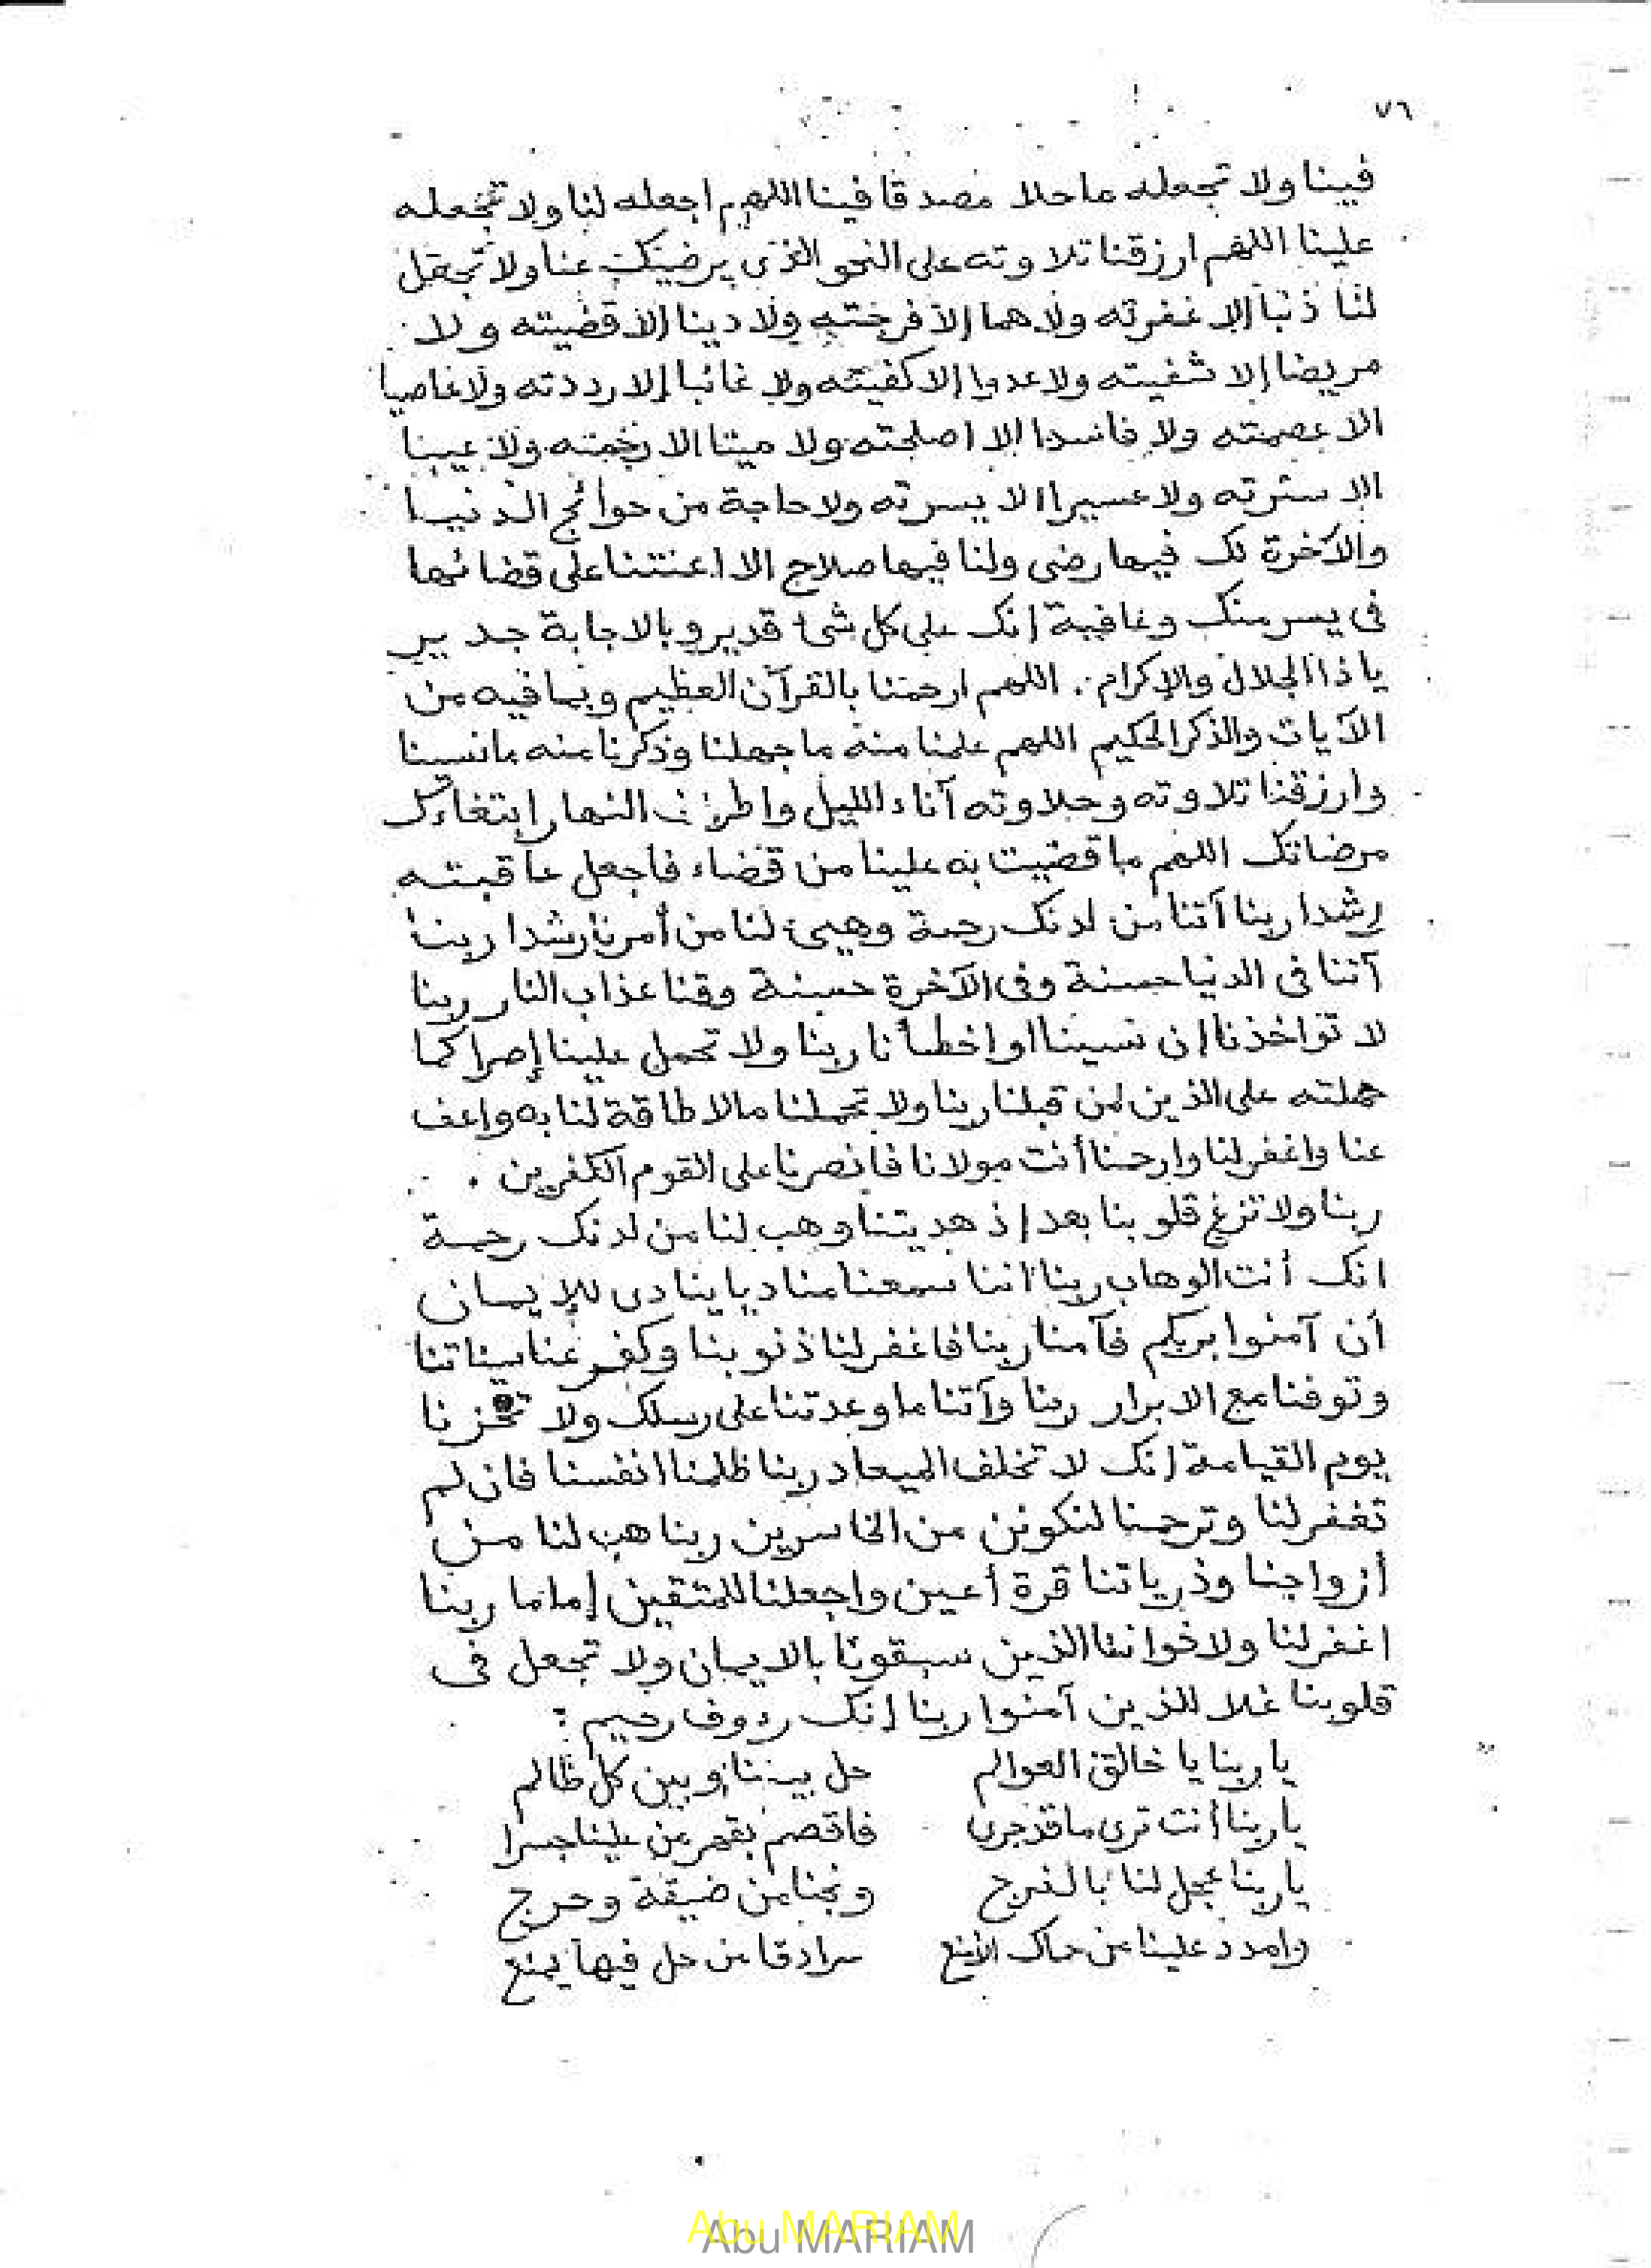 ٧٦
فينا ولا تجعله ماحلا مصدقا فينا اللهم اجعله لنا ولا تجعله
علينا اللهم ارزقنا تلاوته على النحو الذى يرضيك عنا ولا تجعل
لنا ذنبا إلا غفرته ولا هما إلا فرجته ولا دينا إلا قضيته ولا
مريضا إلا شفيته ولا عدوا إلا كفيته ولا غائبا إلا رددته ولا عاصيا
الا عصمته ولا فاسدا إلا اصلحته ولا ميتا الا رحمته ولا عيبا
الا سترته ولا عسيرا الا يسرته ولا حاجة من حوائج الدنيا
والآخرة لك فيها رضى ولنا فيها صلاح الا اعنتنا على قضائها
فى يسر منك وعافية إنك على كل شئ قدير وبالاجابة جدير
يا ذا الجلال والإكرام . اللهم ارحمنا بالقرآن العظيم وبما فيه من
الآيات والذكر الحكيم اللهم علمنا منه ما جهلنا وذكرنا منه ما نسينا
وارزقنا تلاوته وحلاوته آناء الليل واطراف النهار ابتغاءك
مرضاتك اللهم ما قضيت به علينا من قضاء فاجعل عاقبته
رشدا ربنا آتنا من لدنك رحمة وهيئ لنا من أمرنا رشدا ربنا
آتنا فى الدنيا حسنة وفى الآخرة حسنة وقنا عذاب النار ربنا
لا تؤاخذنا إن نسينا او اخطأنا ربنا ولا تحمل علينا إصرا كما
حملته على الذين من قبلنا ربنا ولا تحملنا مالا طاقة لنا به واعف
عنا واغفر لنا وارحمنا أنت مولانا فانصرنا على القوم الكفرين .
ربنا ولا تزغ قلوبنا بعد إذ هديتنا وهب لنا من لدنك رحمة
انك أنت الوهاب ربنا اننا سمعنا مناديا ينادى للإيمان
أن آمنوا بربكم فآمنا ربنا فاغفر لنا ذنوبنا وكفر عنا سيئاتنا
وتوفنا مع الابرار ربنا وآتنا ما وعدتنا على رسلك ولا تخزنا
يوم القيامة إنك لا تخلف الميعاد ربنا ظلمنا انفسنا فان لم
تغفر لنا وترحمنا لنكونن من الخاسرين ربنا هب لنا من
أزواجنا وذرياتنا قرة أعين واجعلنا للمتقين إماما ربنا
اغفر لنا ولاخواننا الذين سبقونا بالايمان ولا تجعل فى
قلوبنا غلا للذين آمنوا ربنا إنك رءوف رحيم :
يا ربنا يا خالق العوالم حل بيننا وبين كل ظالم
يا ربنا أنت ترى ما قد جرى فاقصم بقهر من علينا جسرا
يا ربنا عجل لنا بالفرج ونجنا من ضيقة وحرج
وامدد علينا من حماك الأمنع سرادقا من حل فيها يمنع
Abu MARIAM